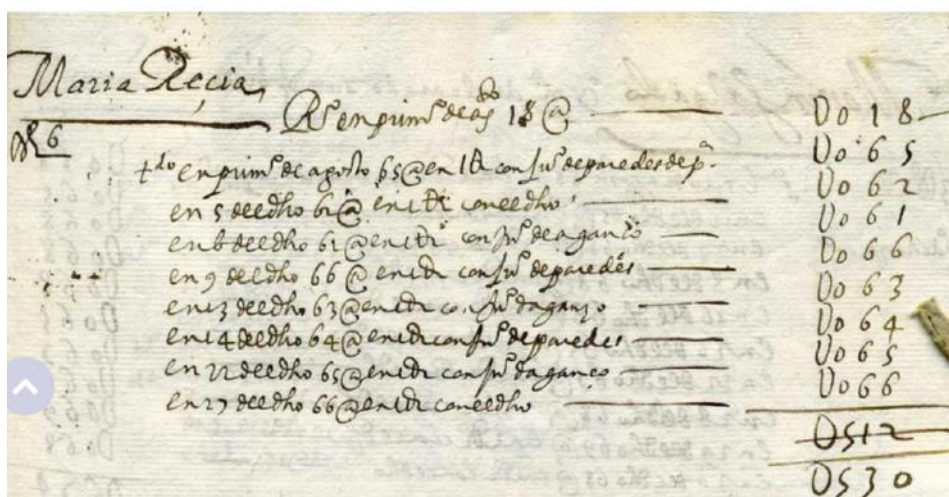 Maria Recia
Rᵒ en primᵒ de agᵗᵒ 18 @ U018
6
en primᵒ de agosto 65 @ en 1 con juᵒ de paredes de U065
en 5 deedho 62 @ en coneedho U062
en 6 deedho 61 @ en con juᵒ de aganço U061
en 9 deedho 66 @ en con juᵒ de paredes U066
en 13 deedho 63 @ en con juᵒ daganço U063
en 14 deedho 64 @ en con juᵒ de paredes U064
en 22 deedho 65 @ en con juᵒ daganco U065
en 27 deedho 66 @ en coneedho U066
U512
U530